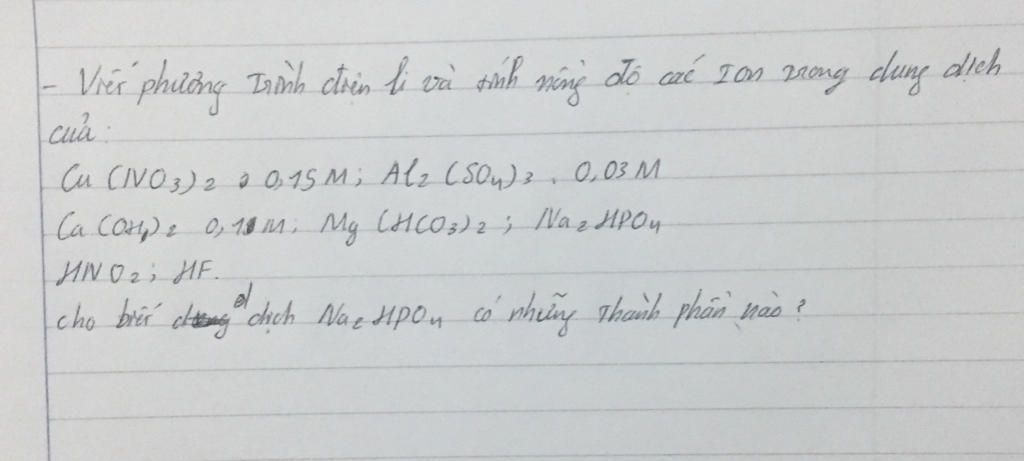 - Viết phương trình điện li và tính nồng độ các Ion trong dung dịch
của:
Cu (NO3)2 0,15M; Al2 (SO4)3 . 0,03M
Ca(OH)2 0,1M; Mg (HCO3)2 ; Na2HPO4
HNO2; HF.
cho biết d dịch Na2HPO4 có những thành phần nào?